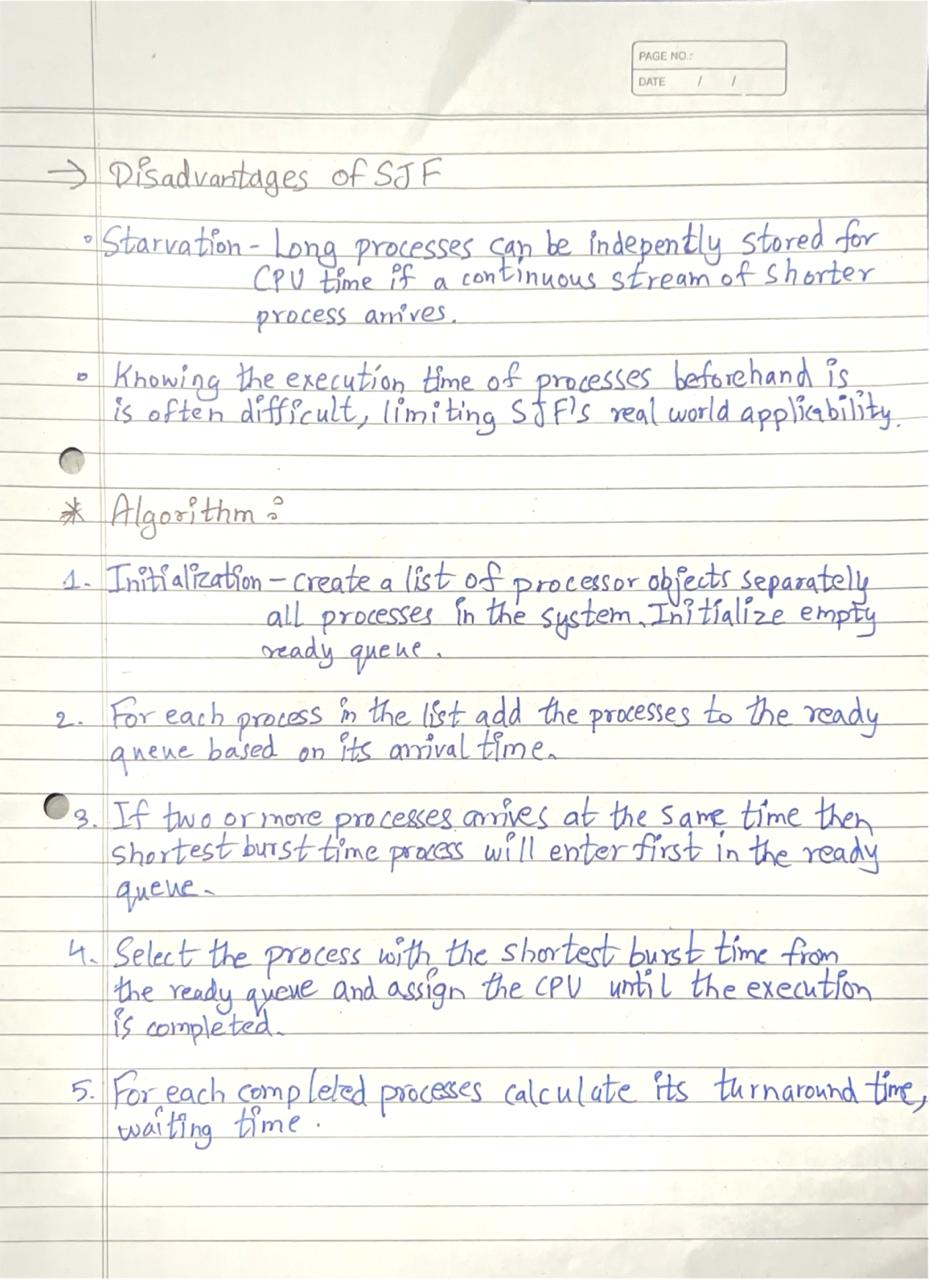 PAGE NO.:
DATE / /
→ Disadvantages of SJF
• Starvation - Long processes can be indepently stored for
CPU time if a continuous stream of shorter
process arrives.
• Knowing the execution time of processes beforehand is
is often difficult, limiting SJF's real world applicability.
* Algorithm :
1. Initialization - create a list of processor objects separately
all processes in the system. Initialize empty
ready queue.
2. For each process in the list add the processes to the ready
queue based on its arrival time.
3. If two or more processes arrives at the same time then
shortest burst time process will enter first in the ready
queue.
4. Select the process with the shortest burst time from
the ready queue and assign the CPU until the execution
is completed.
5. For each completed processes calculate its turnaround time,
waiting time.